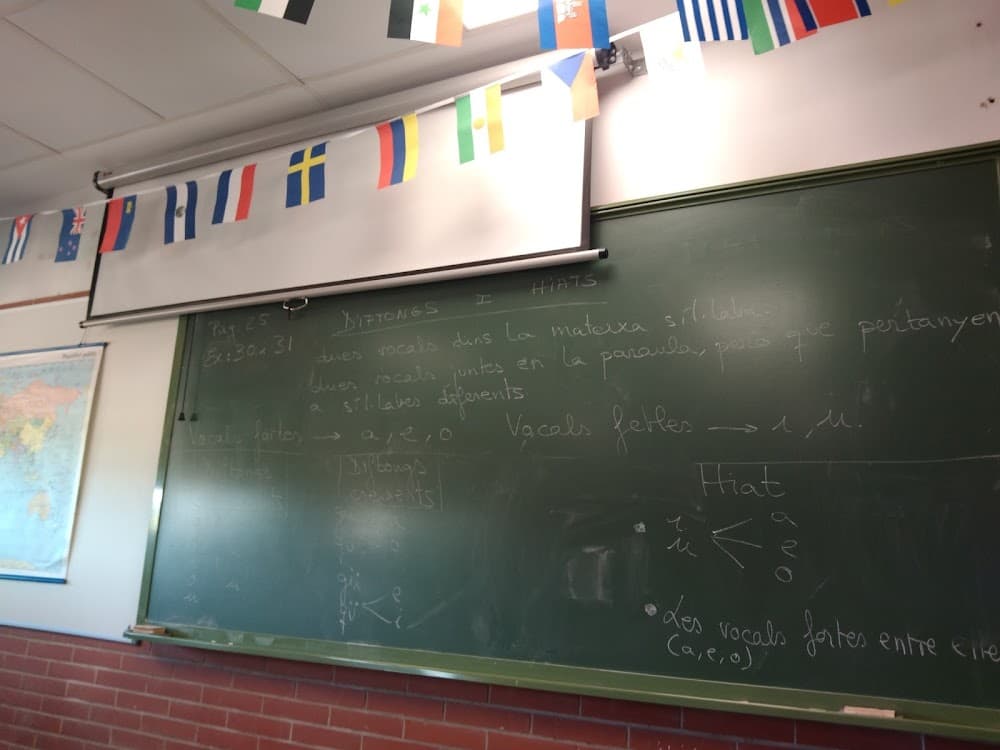 DIFTONGS I HIATS
Pàg. 25
Ex: 30 i 31
dues vocals dins la mateixa síl·laba.
dues vocals juntes en la paraula, però que pertanyen
a síl·labes diferents
Vocals fortes → a, e, o
Vocals febles → i, u.
Diftongs
Hiat
i
u
a
e
o
gü
qü
e
i
• Les vocals fortes entre elles
(a, e, o)